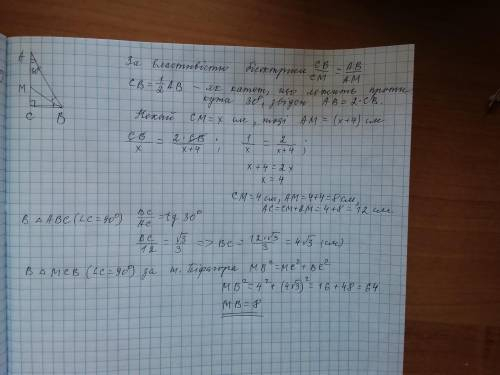 За властивістю бісектриси CB/CM = AB/AM
CB = 1/2 AB – як катет, що лежить проти
кута 30°, звідси AB = 2·CB.
Нехай CM = x см, тоді AM = (x+4) см
CB/x = 2·CB/(x+4) ; 1/x = 2/(x+4) ;
x+4 = 2x
x = 4
CM = 4 см, AM = 4+4 = 8 см,
AC = CM + AM = 4+8 = 12 см
A
30°
M
C B
В △ABC (∠C=90°) BC/AC = tg 30°
BC/12 = √3/3 => BC = 12·√3/3 = 4√3 (см)
В △MCB (∠C=90°) за т. Піфагора MB² = MC² + BC²
MB² = 4² + (4√3)² = 16 + 48 = 64
MB = 8